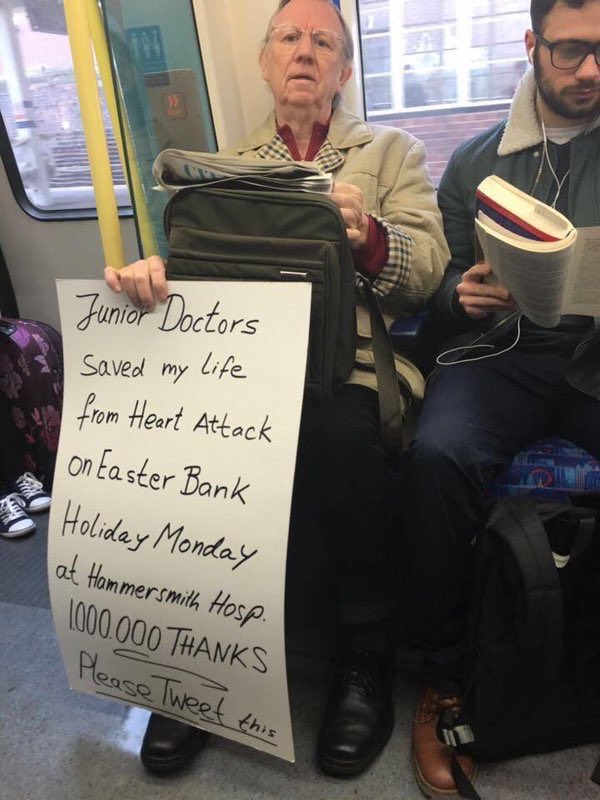 Junior Doctors
saved my life
from Heart Attack
on Easter Bank
Holiday Monday
at Hammersmith Hosp.
1.000.000 THANKS
Please Tweet this